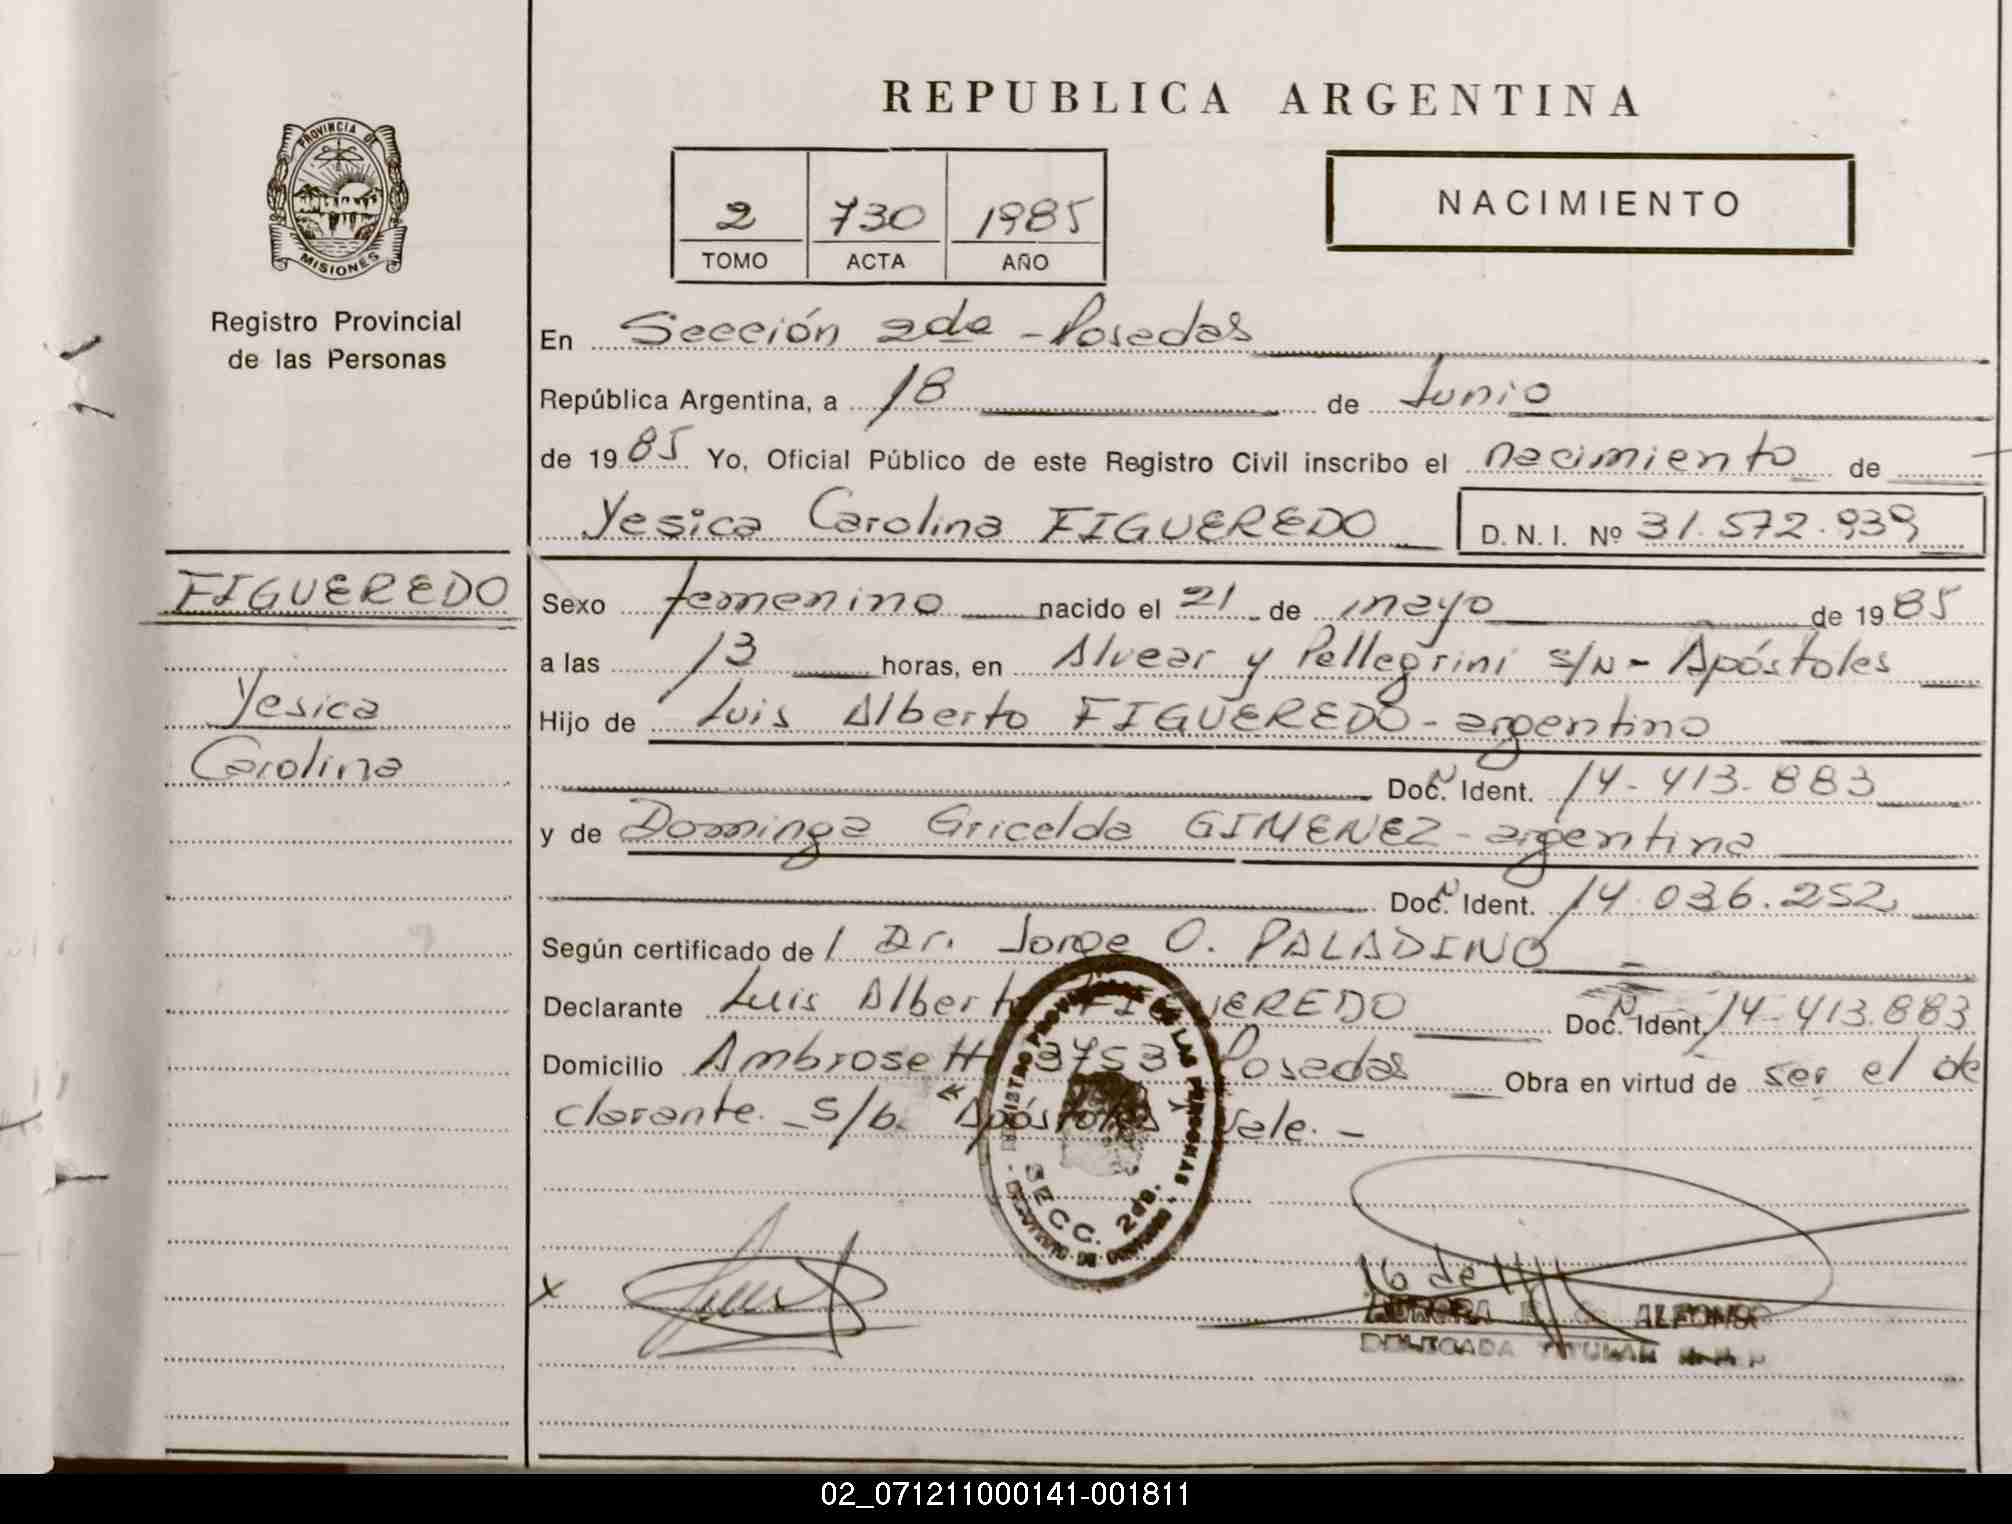 REPUBLICA ARGENTINA
PROVINCIA DE
MISIONES
Registro Provincial
de las Personas
2 730 1985
TOMO ACTA AÑO
NACIMIENTO
En Sección 2da - Posadas
República Argentina, a 18 de Junio
de 1985 Yo, Oficial Público de este Registro Civil inscribo el nacimiento de
Yesica Carolina FIGUEREDO D. N. I. Nº 31.572.939
FIGUEREDO
Yesica
Carolina
Sexo femenino nacido el 21 de mayo de 1985
a las 13 horas, en Alvear y Pellegrini s/n - Apóstoles
Hijo de Luis Alberto FIGUEREDO - argentino
Doc. Ident. 14-413-883
y de Dominga Gricelda GIMENEZ - argentina
Doc. Ident. 14.036.252
Según certificado de l Dr. Jorge O. PALADINO
Declarante Luis Alberto FIGUEREDO Doc. Ident. 14-413.883
Domicilio Ambrosetti 3753 Posadas Obra en virtud de ser el de
clarante. - S/b. "Apóstoles" Vale. -
REGISTRO PROVINCIAL DE LAS PERSONAS
SECC. 2da.
AURORA ALFONSO
DELEGADA TITULAR
02_071211000141-001811